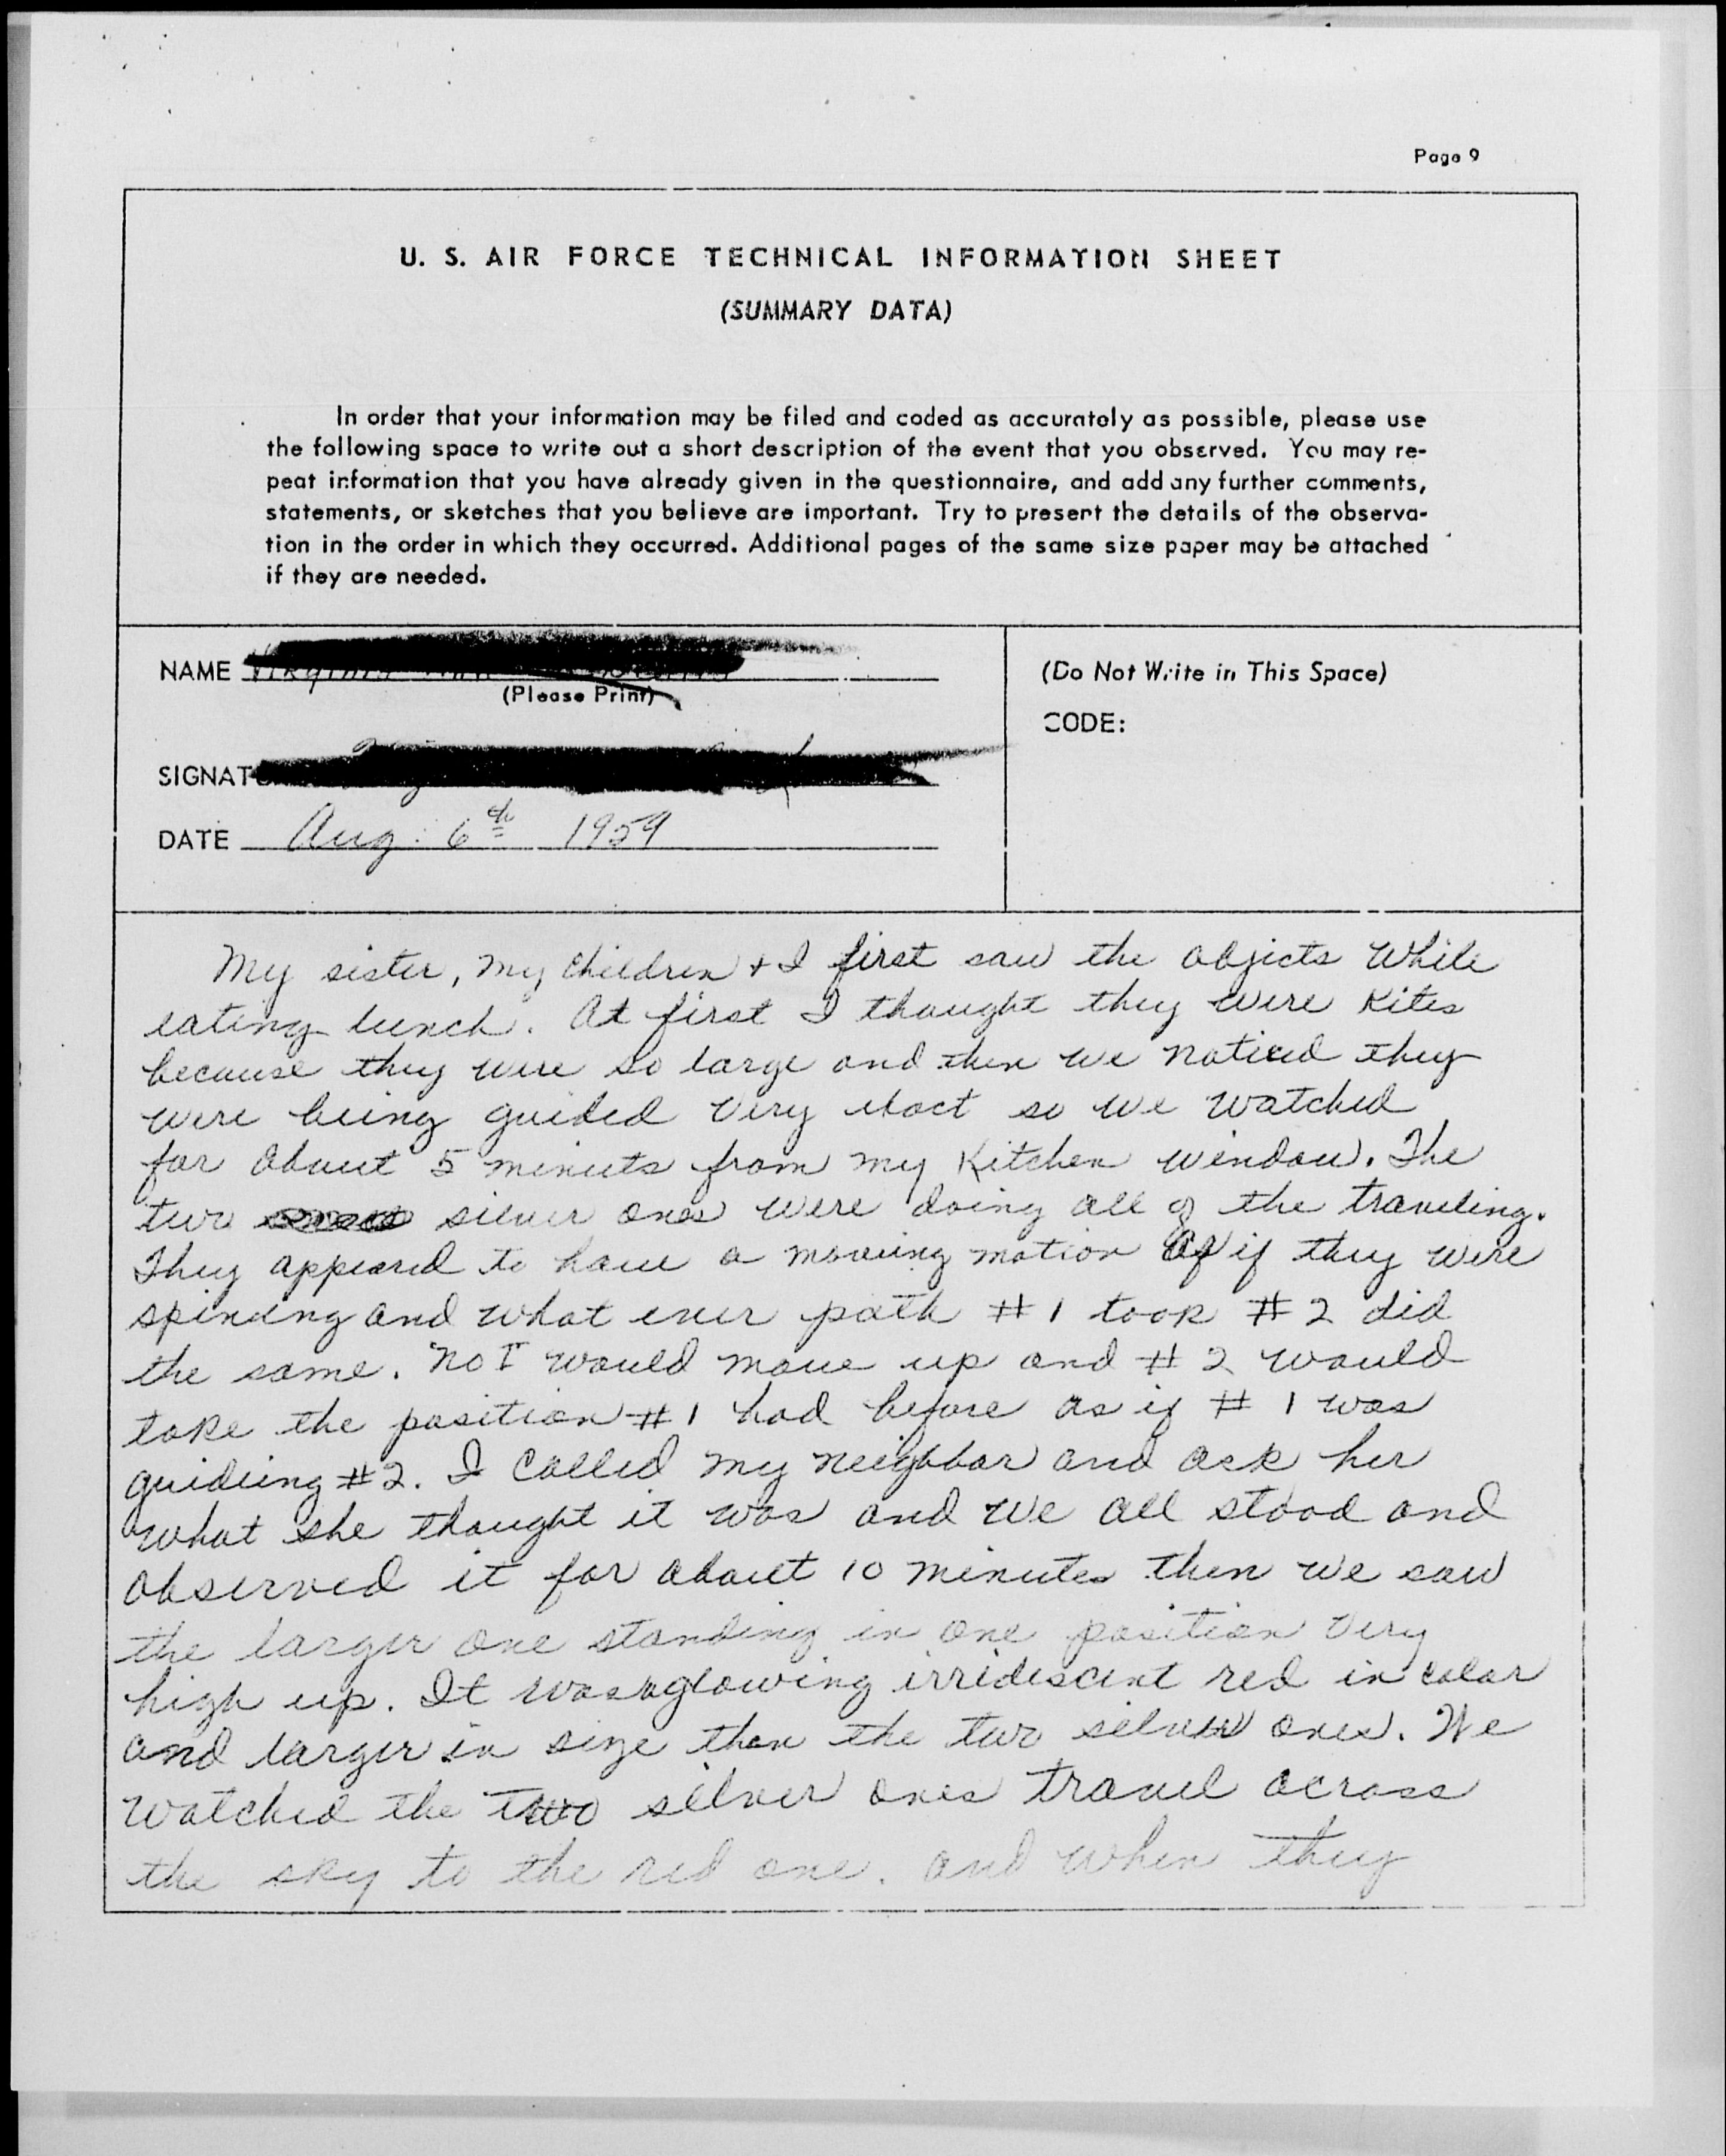 Page 9
U. S. AIR FORCE TECHNICAL INFORMATION SHEET
(SUMMARY DATA)
In order that your information may be filed and coded as accurately as possible, please use
the following space to write out a short description of the event that you observed. You may re-
peat information that you have already given in the questionnaire, and add any further comments,
statements, or sketches that you believe are important. Try to present the details of the observa-
tion in the order in which they occurred. Additional pages of the same size paper may be attached
if they are needed.
NAME
(Please Print)
(Do Not Write in This Space)
CODE:
SIGNAT
DATE Aug. 6th 1959
My sister, my children + I first saw the objects while
eating lunch. At first I thought they were kites
because they were so large and then we noticed they
were being guided very exact so we watched
for about 5 minuts from my kitchen window. The
two silver ones were doing all of the traveling.
They appeared to have a moveing motion as if they were
spinning and what ever path #1 took #2 did
the same. No I would move up and #2 would
take the position #1 had before as if #1 was
guideing #2. I called my neighbor and ask her
what she thought it was and we all stood and
observed it for about 10 minutes then we saw
the larger one standing in one position very
high up. It was a glowing irridescent red in color
and larger in size then the two silver ones. We
watched the two silver ones travel across
the sky to the red one. and when they